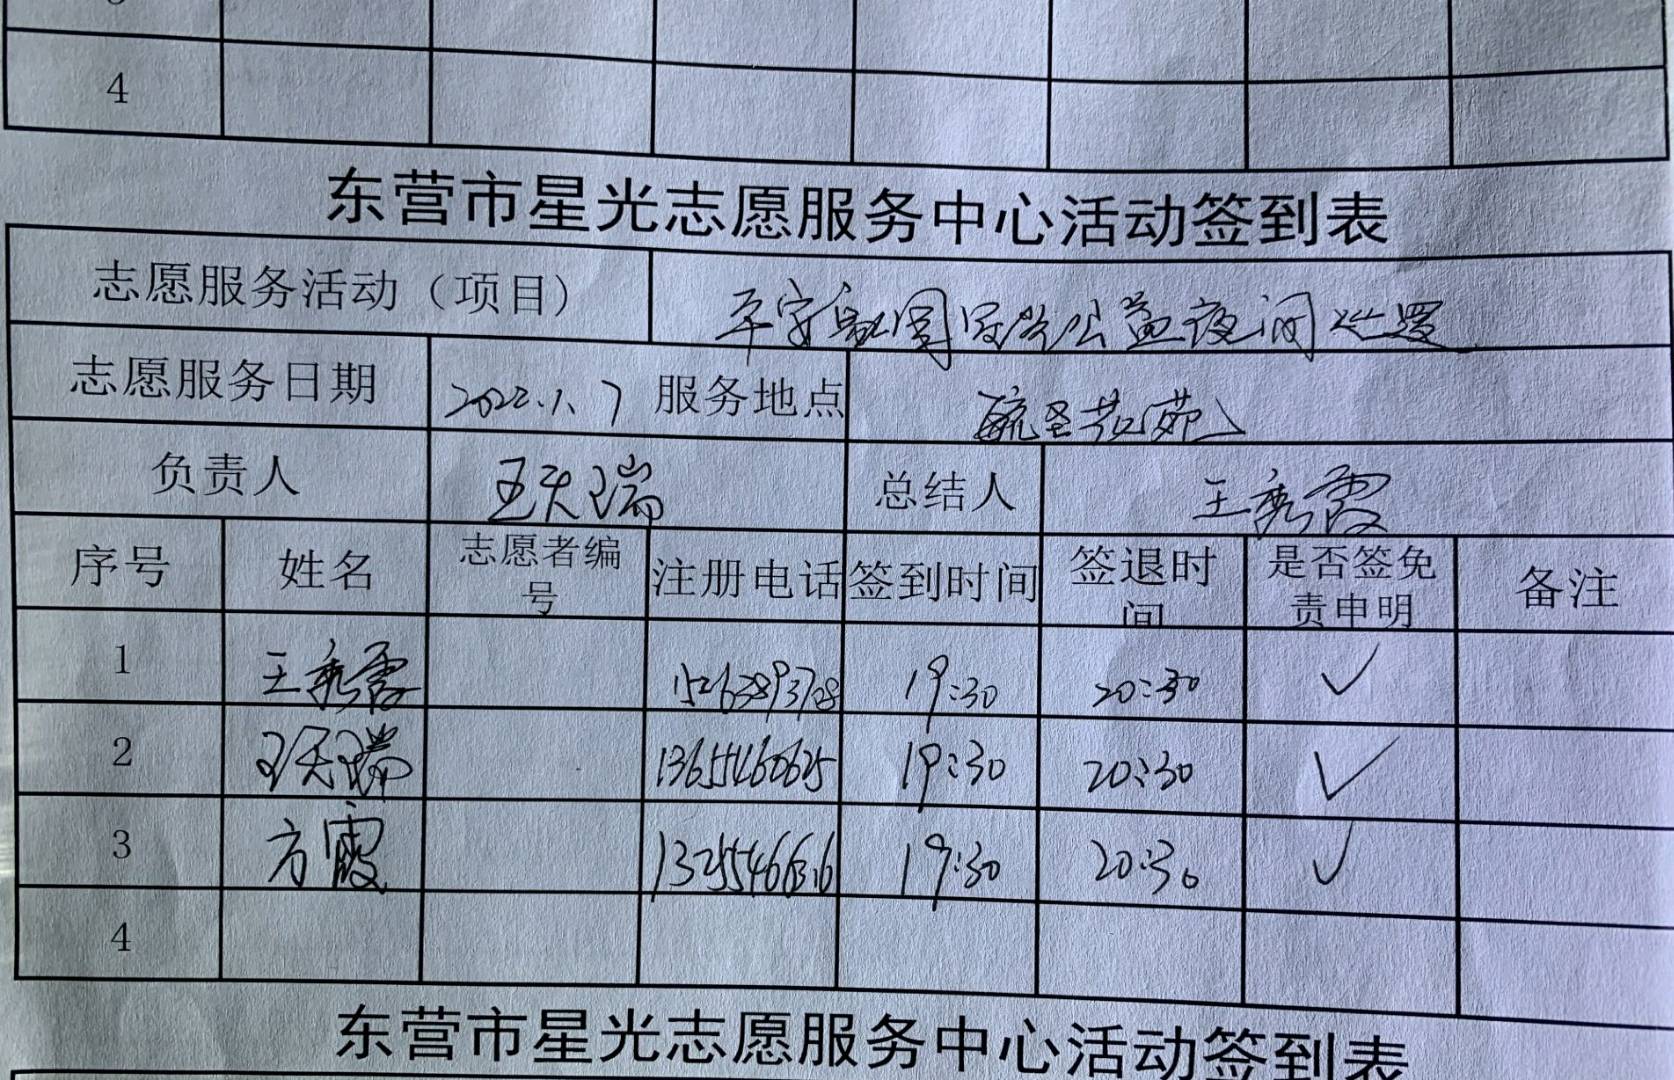 4
东营市星光志愿服务中心活动签到表
志愿服务活动（项目） 平安 公益夜间
志愿服务日期 2022.1.7 服务地点 毓圣花苑
负责人 王天瑞 总结人 王秀霞
序号 姓名 志愿者编号 注册电话 签到时间 签退时间 是否签免责申明 备注
1 王秀霞 19:30 20:30 ✓
2 王天瑞 13655460625 19:30 20:30 ✓
3 方霞 19:30 20:30 ✓
4
东营市星光志愿服务中心活动签到表